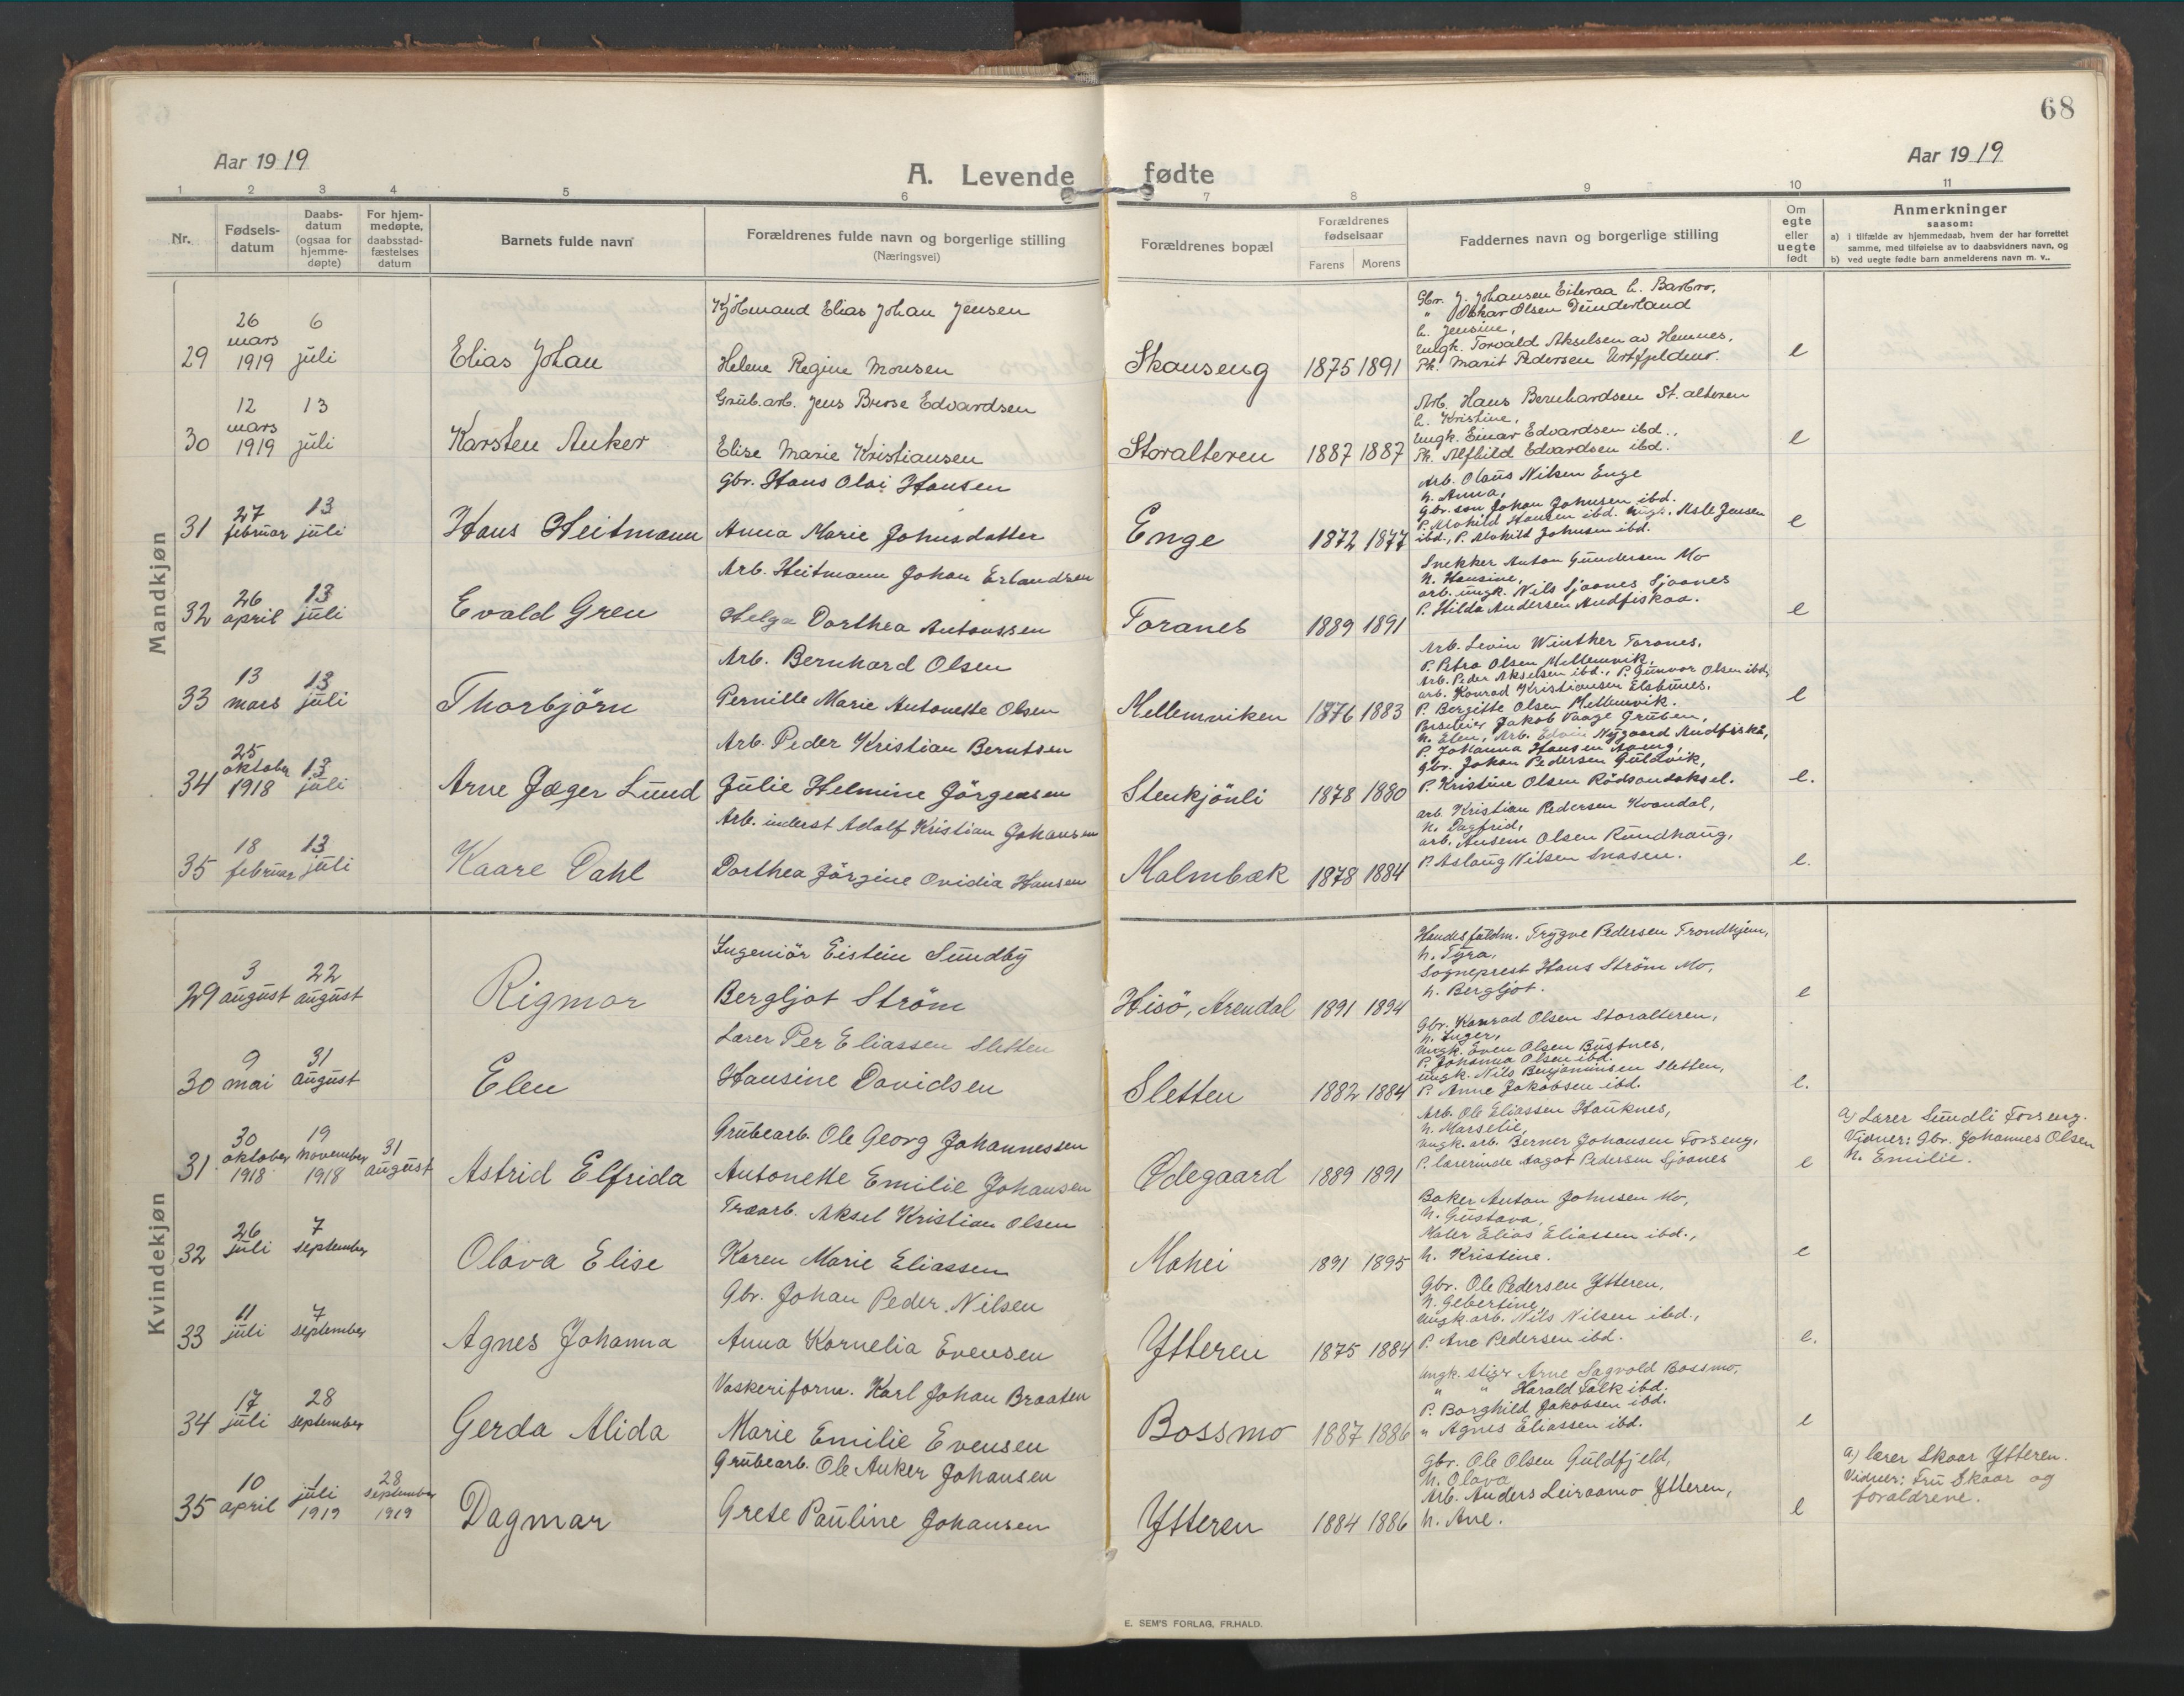 68
Aar 1919
A. Levende fødte
Aar 1919
1 2 3 4 5 6 7 8 9 10 11
Nr.
Fødsels-
datum
Daabs-
datum
(ogsaa for
hjemme-
døpte)
For hjem-
medøpte,
daabsstad-
fæstelses
datum
Barnets fulde navn
Forældrenes fulde navn og borgerlige stilling
(Næringsvei)
Forældrenes bopæl
Forældrenes
fødselsaar
Farens Morens
Faddernes navn og borgerlige stilling
Om
egte
eller
uegte
født
Anmerkninger
saasom:
a) i tilfælde av hjemmedaab, hvem der har forrettet
samme, med tilføielse av to daabsvidners navn, og
b) ved uegte fødte barn anmelderens navn m. v..
Mandkjøn
29
26
mars
1919
6
juli
Elias Johan
Kjöbmand Elias Johan Jensen
Helene Regine Monsen
Skauseng
1875 1891
Gbr. J. Johansen Eiteraa h. Barbro,
" Oskar Olsen Dunderland
h. Jensine,
Ungk. Torvald Akselsen av Hemnes,
Pk. Marit Pedersen Urtfjeldmo.
e
30
12
mars
1919
13
juli
Karsten Anker
Grub.arb. Jens Brose Edvardsen
Elise Marie Kristiansen
Storalteren
1887 1887
Arb. Hans Bernhardsen St.alteren
h. Kristine,
Ungk. Einar Edvardsen ibd.,
Pk. Alfhild Edvardsen ibd.
e
31
27
februar
13
juli
Hans Heitmann
Gbr. Hans Olai Hansen
Anna Marie Johnsdatter
Enge
1872 1877
Arb. Olaus Nilsen Enge
h. Anna,
Gbr. søn Johan Johnsen ibd.
P. Alohild Hansen ibd. Ungk. Asle Jensen
ibd., P. Alohild Johnsen ibd.
e
32
26
april
13
juli
Evald Gren
Arb. Heitmann Johan Erlandsen
Helga Dorthea Antonssen
Toranes
1889 1891
Snekker Anton Gundersen Mo
h. Hansine,
arb. ungk. Nils Sjaanes Sjaanes
P. Hilda Andersen Andfiskaa.
e
33
13
mars
13
juli
Thorbjörn
Arb. Bernhard Olsen
Pernille Marie Antonette Olsen
Mellemviken
1876 1883
Arb. Levin Winther Toranes,
P. Petra Olsen Mellemvik,
Arb. Peder Akselsen ibd., P. Gunvor Olsen ibd,
arb. Konrad Kristiansen Elsbunes,
P. Bergitte Olsen Mellemvik.
e
34
25
oktober
1918
13
juli
Arne Jæger Lund
Arb. Peder Kristian Berntsen
Julie Helmine Jörgensen
Stenkjönli
1878 1880
Jakob Vaage Gruben,
h. Elen, Arb. Edvin Nygaard Andfiskå,
P. Johanna Hansen Aaeng,
Gbr. Johan Pedersen Guldvik,
P. Kristine Olsen Rödsandaksel.
e.
35
18
februar
13
juli
Kaare Dahl
Arb. inderst Adolf Kristian Johansen
Dorthea Jörgine Ovidia Hansen
Malmbæk
1878 1884
arb. Kristian Pedersen Kvandal,
h. Dagfrid,
arb. Ansem Olsen Rundhaug,
P. Aslaug Nilsen Snasen.
e.
Kvindekjøn
29
3
august
22
august
Rigmor
Ingeniör Eistein Sundby
Bergljot Ström
Hisö, Arendal
1891 1894
Handelsfuldm. Trygve Pedersen Trondhjem,
h. Tyra,
Sogneprest Hans Ström Mo,
h. Bergljot.
e
30
9
mai
31
august
Elen
Lærer Per Eliassen Sletten
Hansine Davidsen
Sletten
1882 1884
Gbr. Konrad Olsen Storalteren,
h. Inger,
Ungk. Even Olsen Bustnes,
P. Johanna Olsen ibd.
ungk. Nils Benjaminsen Sletten,
P. Anne Jakobsen ibd.
e.
31
30
oktober
1918
19
november
1918
31
august
Astrid Elfrida
Grubearb. Ole Georg Johannessen
Antonette Emilie Johansen
Ødegaard
1889 1891
Arb. Ole Eliassen Hauknes,
h. Marselie,
ungk. arb. Berner Johansen Forseng,
P. lærerinde Aagot Pedersen Sjaanes
e
a) Lærer Sundli Forseng.
Vidner: Gbr. Johannes Olsen
h. Emilie.
32
26
juli
7
september
Olava Elise
Træarb. Aksel Kristian Olsen
Karen Marie Eliassen
Mohei
1891 1895
Baker Anton Johnsen Mo,
h. Gustava,
Maler Elias Eliassen ibd.,
h. Kristine.
e
33
11
juli
7
september
Agnes Johanna
Gbr. Johan Peder Nilsen
Anna Kornelia Evensen
Ytteren
1875 1884
Gbr. Ole Pedersen Ytteren,
h. Gebertine,
Ungk. arb. Nils Nilsen ibd.,
P. Ane Pedersen ibd.
e.
34
17
juli
28
september
Gerda Alida
Vaskeriform. Karl Johan Braaten
Marie Emilie Evensen
Bossmo
1887 1886
Ungk. stigr Arne Sagvold Bossmo,
" " Harald Falk ibd.
P. Borghild Jakobsen ibd.
" Agnes Eliassen ibd.
e
35
10
april
1
juli
1919
28
september
1919
Dagmar
Grubearb. Ole Anker Johansen
Grete Pauline Johansen
Ytteren
1884 1886
Gbr. Ole Olsen Guldfjeld,
h. Olava
Arb. Anders Leiraamo Ytteren,
h. Ane.
e
a) lærer Skaar Ytteren.
Vidner: Fru Skaar og
forældrene.
E. SEM'S FORLAG, FR.HALD.